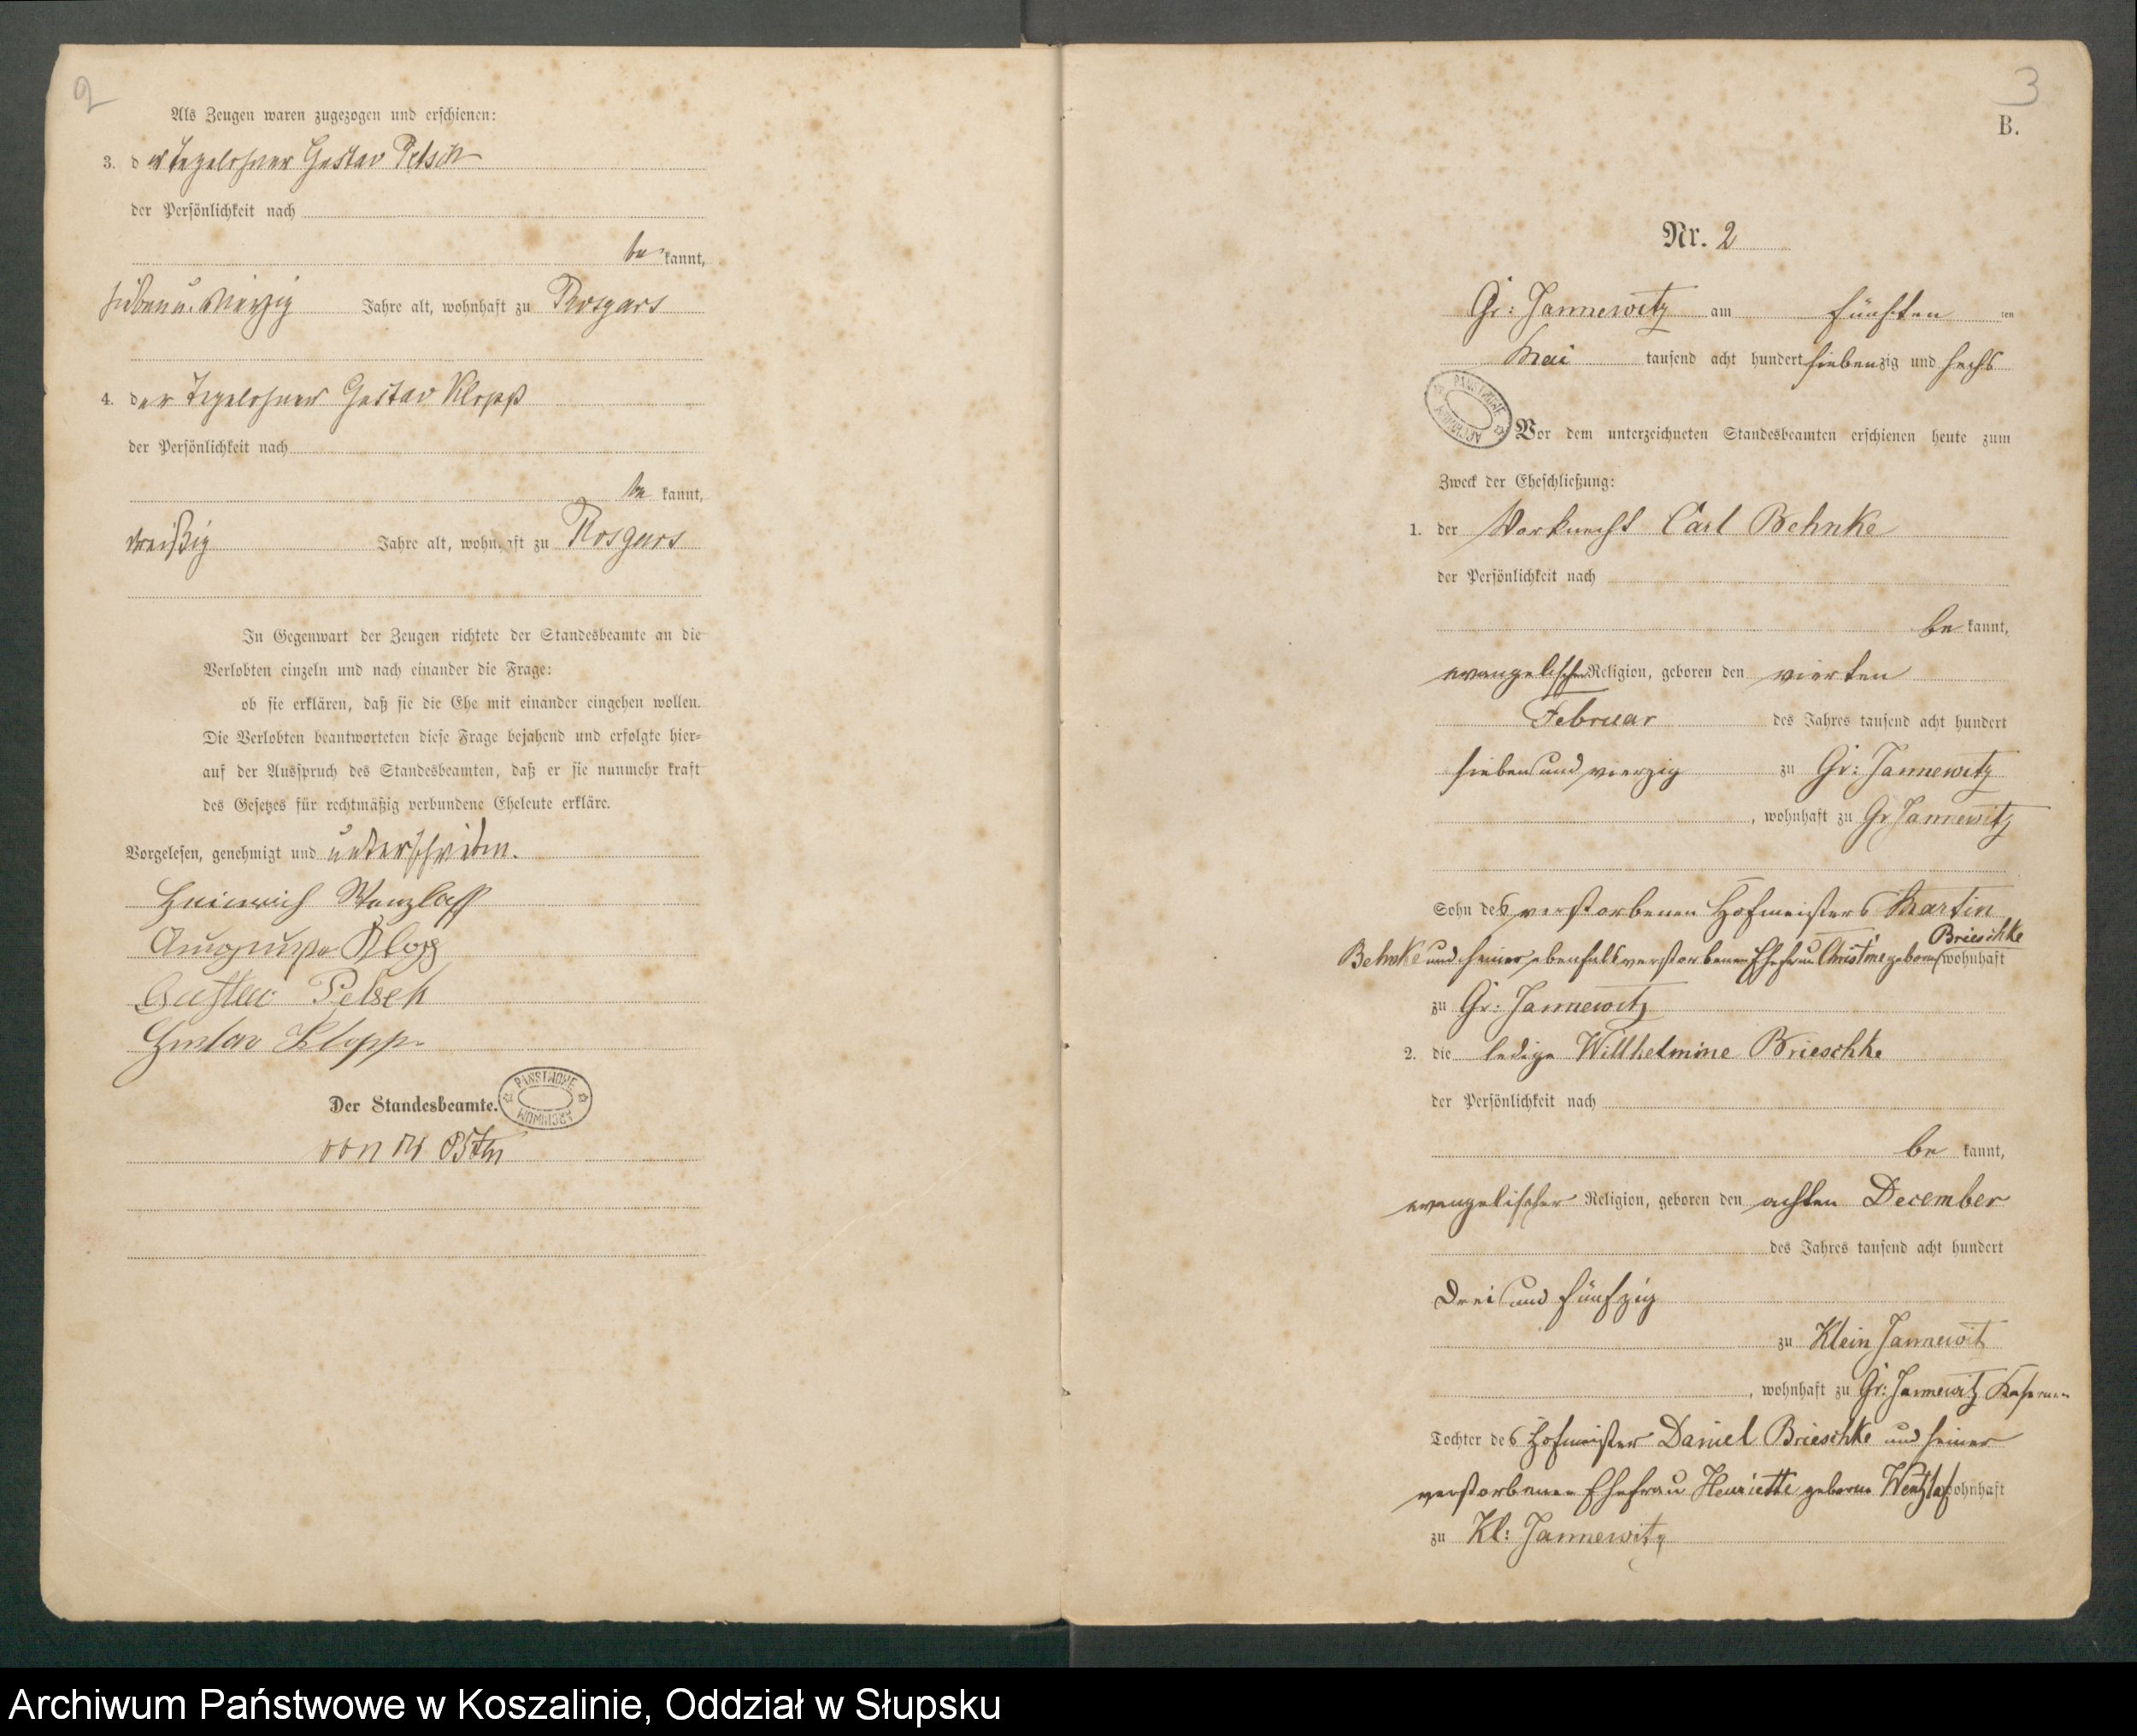 2
Als Zeugen waren zugezogen und erschienen:
3. der Tagelöhner Gustav Petsch
der Persönlichkeit nach
bekannt,
sieben u. vierzig Jahre alt, wohnhaft zu Rosgars
4. der Tagelöhner Gustav Klopp
der Persönlichkeit nach
bekannt,
dreißig Jahre alt, wohnhaft zu Rosgars
In Gegenwart der Zeugen richtete der Standesbeamte an die
Verlobten einzeln und nach einander die Frage:
ob sie erklären, daß sie die Ehe mit einander eingehen wollen.
Die Verlobten beantworteten diese Frage bejahend und erfolgte hier-
auf der Ausspruch des Standesbeamten, daß er sie nunmehr kraft
des Gesetzes für rechtmäßig verbundene Eheleute erkläre.
Vorgelesen, genehmigt und unterschrieben.
Heinrich Wenzlaff
Klopp
Gustav Petsch
Gustav Klopp
Der Standesbeamte.
PAŃSTWOWE ARCHIWUM
von
3
B.
Nr. 2
Gr: Jannewitz am fünften ten
Mai tausend acht hundert siebenzig und sechs
PAŃSTWOWE ARCHIWUM
Vor dem unterzeichneten Standesbeamten erschienen heute zum
Zweck der Eheschließung:
1. der Vorknecht Carl Behnke
der Persönlichkeit nach
bekannt,
evangelischer Religion, geboren den vierten
Februar des Jahres tausend acht hundert
sieben und vierzig zu Gr: Jannewitz
, wohnhaft zu Gr Jannewitz
Sohn des verstorbenen Hofmeisters Martin
Brieschke
Behnke und seiner ebenfalls verstorbenen Ehefrau Christine geborne wohnhaft
zu Gr: Jannewitz
2. die ledige Willhelmine Brieschke
der Persönlichkeit nach
bekannt,
evangelischer Religion, geboren den achten December
des Jahres tausend acht hundert
drei und fünfzig
zu Klein Jannewit
, wohnhaft zu Gr: Jannewitz
Tochter des Hofmeister Daniel Brieschke und seiner
verstorbenen Ehefrau Henriette geborne Wentzlaf wohnhaft
zu Kl: Jannewitz
Archiwum Państwowe w Koszalinie, Oddział w Słupsku